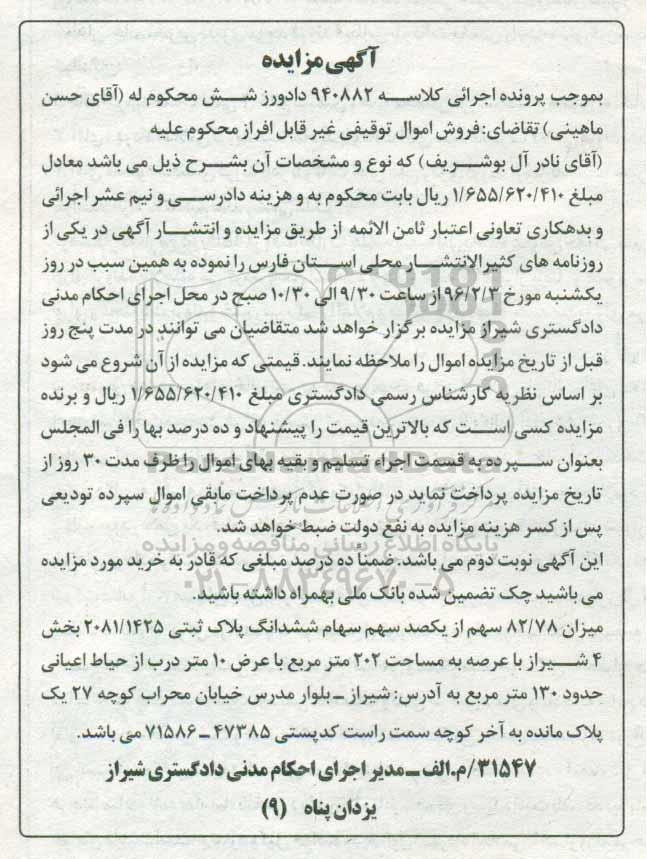 آگهی مزایده
بموجب پرونده اجرائی کلاسه ۹۴۰۸۸۲ دادورز شش محکوم له (آقای حسن
ماهینی) تقاضای: فروش اموال توقیفی غیر قابل افراز محکوم علیه
(آقای نادر آل بوشریف) که نوع و مشخصات آن بشرح ذیل می باشد معادل
مبلغ ۱/۶۵۵/۶۲۰/۴۱۰ ریال بابت محکوم به و هزینه دادرسی و نیم عشر اجرائی
و بدهکاری تعاونی اعتبار ثامن الائمه از طریق مزایده و انتشار آگهی در یکی از
روزنامه های کثیرالانتشار محلی استان فارس را نموده به همین سبب در روز
یکشنبه مورخ ۹۶/۲/۳ از ساعت ۹/۳۰ الی ۱۰/۳۰ صبح در محل اجرای احکام مدنی
دادگستری شیراز مزایده برگزار خواهد شد متقاضیان می توانند در مدت پنج روز
قبل از تاریخ مزایده اموال را ملاحظه نمایند. قیمتی که مزایده از آن شروع می شود
بر اساس نظریه کارشناس رسمی دادگستری مبلغ ۱/۶۵۵/۶۲۰/۴۱۰ ریال و برنده
مزایده کسی است که بالاترین قیمت را پیشنهاد و ده درصد بها را فی المجلس
بعنوان سپرده به قسمت اجراء تسلیم و بقیه بهای اموال را ظرف مدت ۳۰ روز از
تاریخ مزایده پرداخت نماید در صورت عدم پرداخت مابقی اموال سپرده تودیعی
پس از کسر هزینه مزایده به نفع دولت ضبط خواهد شد.
پایگاه اطلاع رسانی مناقصه و مزایده
این آگهی نوبت دوم می باشد. ضمناً ده درصد مبلغی که قادر به خرید مورد مزایده
۰۲۱-۸۸۳۴۹۶۷۰-۵
می باشید چک تضمین شده بانک ملی بهمراه داشته باشید.
میزان ۸۲/۷۸ سهم از یکصد سهم سهام ششدانگ پلاک ثبتی ۲۰۸۱/۱۴۲۵ بخش
۴ شیراز با عرصه به مساحت ۲۰۲ متر مربع با عرض ۱۰ متر درب از حیاط اعیانی
حدود ۱۳۰ متر مربع به آدرس: شیراز ـ بلوار مدرس خیابان محراب کوچه ۲۷ یک
پلاک مانده به آخر کوچه سمت راست کدپستی ۴۷۳۸۵ ـ ۷۱۵۸۶ می باشد.
۳۱۵۴۷/م.الف ـ مدیر اجرای احکام مدنی دادگستری شیراز
یزدان پناه (۹)